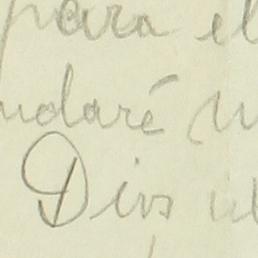 para el
udaré
Dios